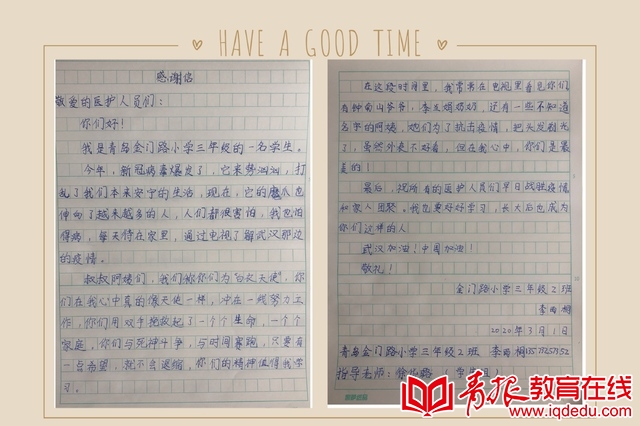 HAVE A GOOD TIME
感谢信
敬爱的医护人员们：
你们好！
我是青岛金门路小学三年级的一名学生。
今年，新冠病毒爆发了，它来势汹汹，打
乱了我们本来安宁的生活，现在，它的魔爪也
伸向了越来越多的人，人们都很害怕，我也怕
得病，每天待在家里，通过电视了解武汉那边
的疫情。
叔叔阿姨们，我们称你们为“白衣天使”，你
们在我心中真的像天使一样，冲在一线努力工
作，你们用双手挽救起了一个个生命，一个个
家庭，你们与死神斗争，与时间赛跑，只要有
一点希望，就不会退缩，你们的精神值得我学
习。
在这段时间里，我常常在电视里看见你们
有钟南山爷爷，李兰娟奶奶，还有一些不知道
名字的阿姨，她们为了抗击疫情，把头发剃光
了，虽然外表不好看，但在我心中，你们是最
美的！
最后，祝所有的医护人员们早日战胜疫情
和家人团聚。我也要好好学习，长大后也成为
你们这样的人！
武汉加油！中国加油！
敬礼！
金门路小学三年级2班
李雨桐
2020年3月1日
青岛金门路小学三年级2班 李雨桐
指导老师：徐
青报教育在线
www.iqdedu.com